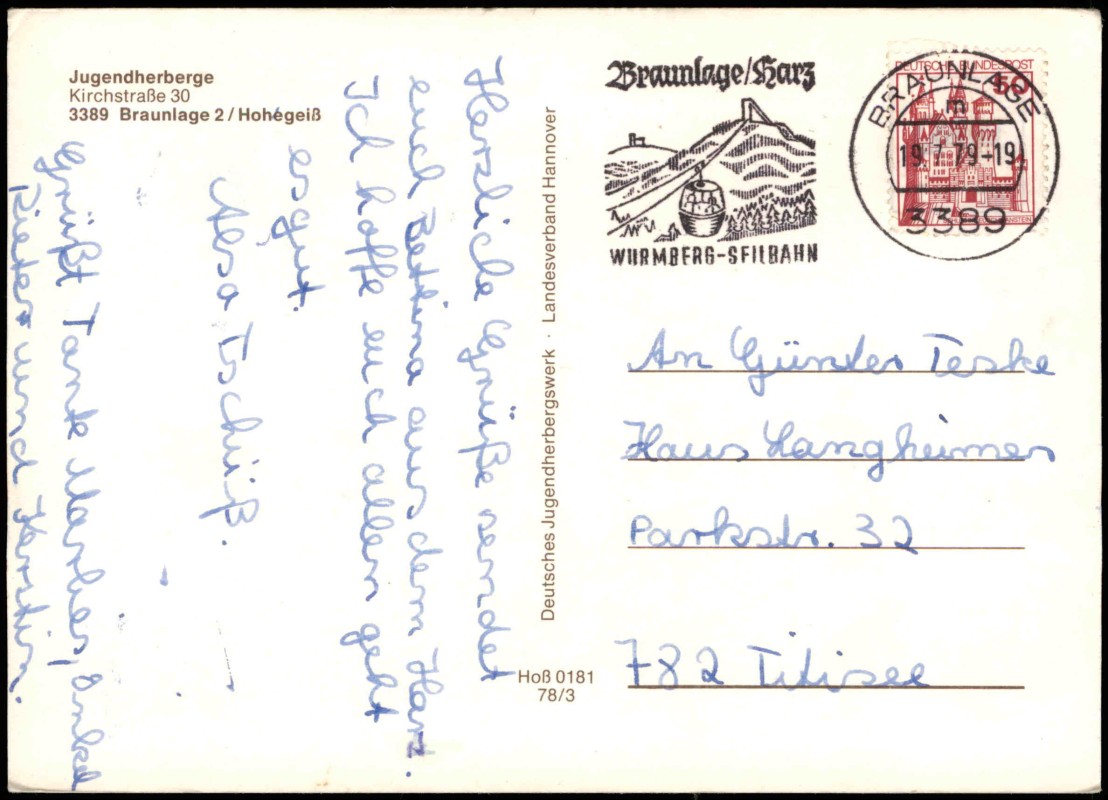 Jugendherberge
Kirchstraße 30
3389 Braunlage 2 / Hohegeiß
Herzliche Grüße sendet
euch Bettina aus dem Harz.
Ich hoffe euch allen geht
es gut.
Also Tschüß.
Grüßt Tante Marlies, Onkel
Dieter und Kerstin.
Deutsches Jugendherbergswerk · Landesverband Hannover
Hoß 0181
78/3
Braunlage/Harz
WURMBERG-SEILBAHN
DEUTSCHE BUNDESPOST
50
BRAUNLAGE
m
19.7.79-19
3389
An Günter Teske
Haus Langheimer
Parkstr. 32
782 Titisee